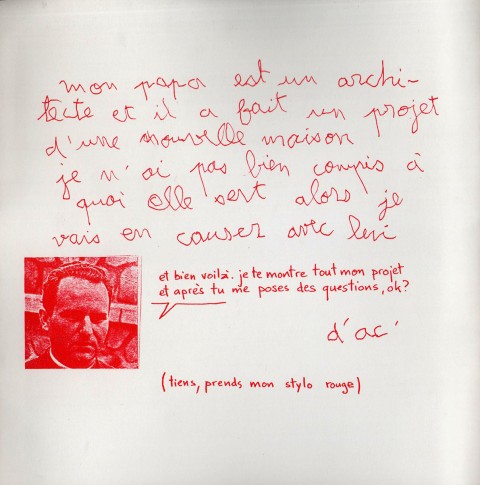 mon papa est un archi-
tecte et il a fait un projet
d'une nouvelle maison
je n'ai pas bien compris à
quoi elle sert alors je
vais en causer avec lui
et bien voilà. je te montre tout mon projet
et après tu me poses des questions, ok?
d'ac'
(tiens, prends mon stylo rouge)